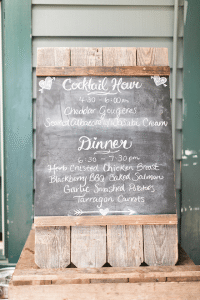 Cocktail Hour
4:30 - 6:00pm
Cheddar Gougeres
Cream
Dinner
6:30 - 7:30pm
Herb Crusted Chicken Breast
Blackberry BBQ Baked Salmon
Garlic Smashed Potatoes
Tarragon Carrots